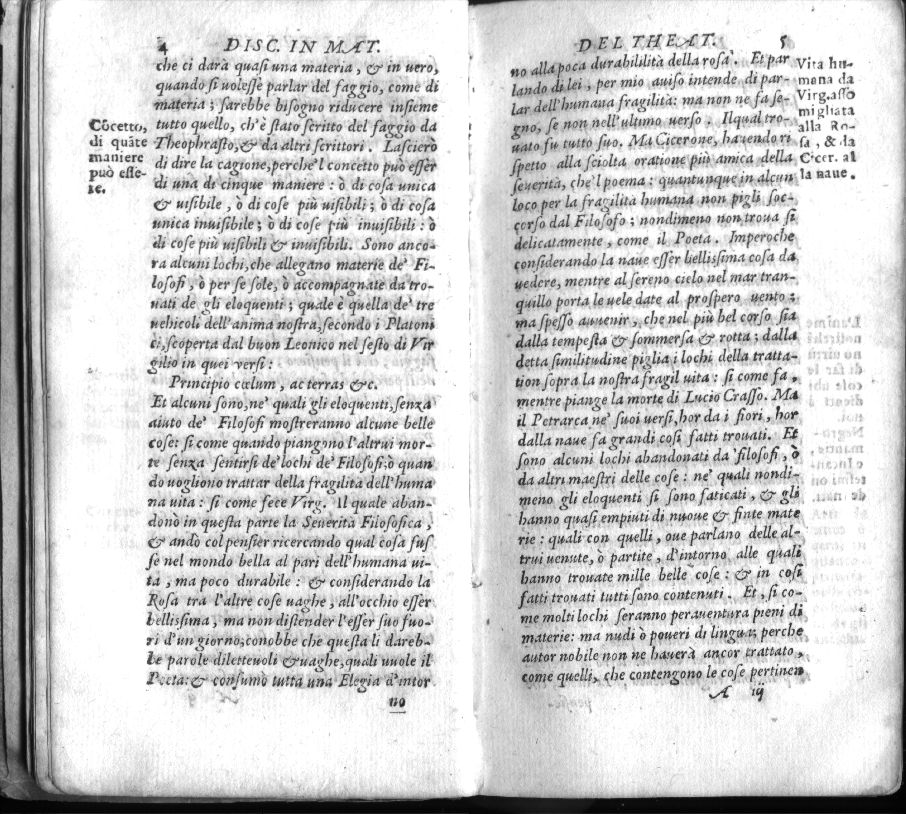 4 DISC. IN MAT.
che ci darà quasi una materia, & in uero,
quando si uolesse parlar del faggio, come di
materia; sarebbe bisogno riducere insieme
tutto quello, ch'è stato scritto del faggio da
Theophrasto, & da altri scrittori. Lasciero
di dire la cagione, perche'l concetto può esser
di una di cinque maniere: ò di cosa unica
& uisibile, ò di cose più uisibili; ò di cosa
unica inuisibile; ò di cose più inuisibili: ò
di cose più uisibili & inuisibili. Sono anco-
ra alcuni lochi, che allegano materie de' Fi-
losofi, ò per se sole, ò accompagnate da tro-
uati de gli eloquenti; quale è quella de' tre
uehicoli dell'anima nostra, secondo i Platoni
ci, scoperta dal buon Leonico nel sesto di Vir
gilio in quei versi:
Principio cœlum, ac terras &c.
Et alcuni sono, ne' quali gli eloquenti, senza
aiuto de' Filosofi mostreranno alcune belle
cose: si come quando piangono l'altrui mor-
te senza sentirsi de' lochi de' Filosofi; ò quan
do uogliono trattar della fragilità dell'huma
na uita: si come fece Virg. Il quale aban-
donò in questa parte la Seuerità Filosofica,
& andò col pensier ricercando qual cosa fus
se nel mondo bella al pari dell'humana ui-
ta, ma poco durabile: & considerando la
Rosa tra l'altre cose uaghe, all'occhio esser
bellissima, ma non distender l'esser suo fuo-
ri d'un giorno; conobbe che questa li dareb-
be parole diletteuoli & uaghe, quali uuole il
Poeta: & consumò tutta una Elegia d'intor
no
Cōcetto,
di quāte
maniere
può esse-
re.
DEL THEAT. 5
no alla poca durabililità della rosa. Et par
lando di lei, per mio auiso intende di par-
lar dell'humana fragilità: ma non ne fa se-
gno, se non nell'ultimo uerso. Ilqual tro-
uato fu tutto suo. Ma Cicerone, hauendo ri
spetto alla sciolta oratione più amica della
seuerità, che'l poema: quantunque in alcun
loco per la fragilità humana non pigli soc-
corso dal Filosofo; nondimeno non troua si
delicatamente, come il Poeta. Imperoche
considerando la naue esser bellissima cosa da
uedere, mentre al sereno cielo nel mar tran-
quillo porta le uele date al prospero uento;
ma spesso auuenir, che nel più bel corso sia
dalla tempesta & sommersa & rotta; dalla
detta similitudine piglia i lochi della tratta-
tion sopra la nostra fragil uita: si come fa,
mentre piange la morte di Lucio Crasso. Ma
il Petrarca ne' suoi uersi, hor da i fiori, hor
dalla naue fa grandi cosi fatti trouati. Et
sono alcuni lochi abandonati da' filosofi, ò
da altri maestri delle cose: ne' quali nondi-
meno gli eloquenti si sono faticati, & gli
hanno quasi empiuti di nuoue & finte mate
rie: quali con quelli, oue parlano delle al-
trui uenute, ò partite, d'intorno alle quali
hanno trouate mille belle cose: & in cosi
fatti trouati tutti sono contenuti. Et, si co-
me molti lochi seranno perauentura pieni di
materie: ma nudi ò poueri di lingua; perche
autor nobile non ne hauerà ancor trattato,
come quelli, che contengono le cose pertinen
A iij
Vita hu-
mana da
Virg. asso
migliata
alla Ro-
sa, & da
Cicer. al
la naue.